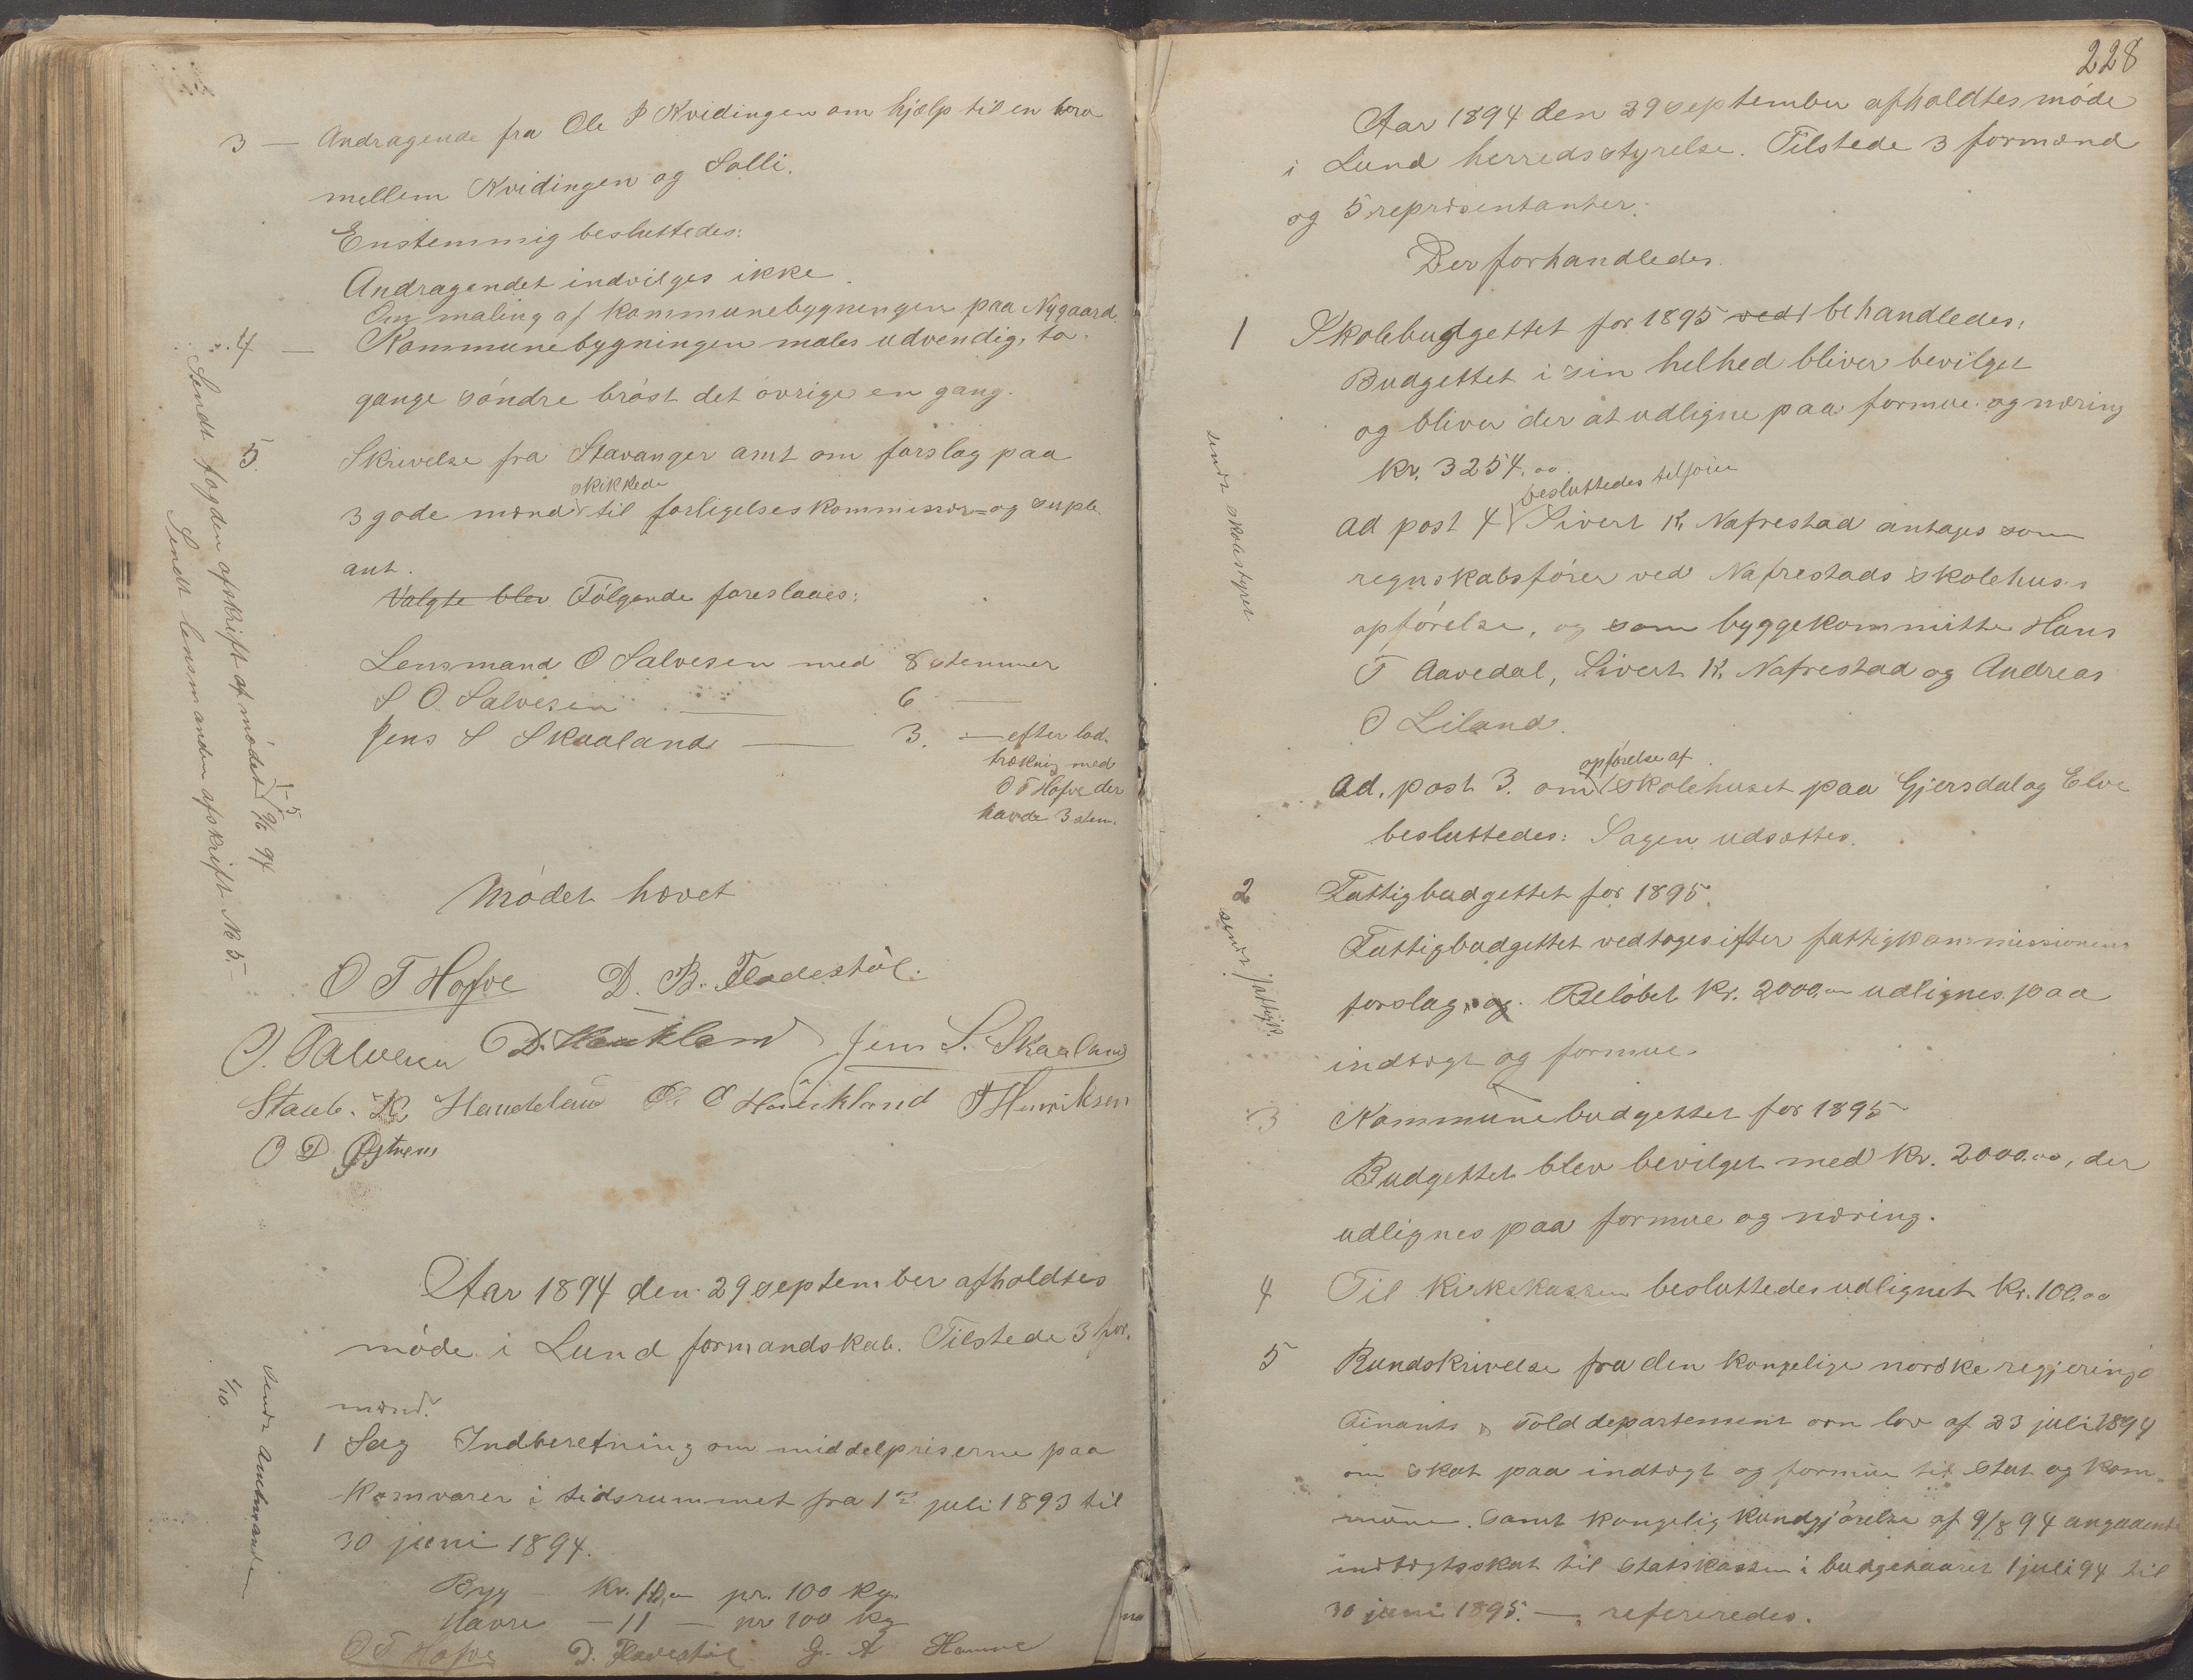 3 — Andragende fra Ole P Kvidingen om hjælp til en bro
mellem Kvidingen og Salli.
Enstemmig besluttedes:
Andragendet indvilges ikke.
Om maling af kommunebygningen paa Nygaard.
4 — Kommunebygningen males udvendig, to
gange søndre brøst det øvrige en gang.
5. Skrivelse fra Stavanger amt om forslag paa
skikkede
3 gode mænd til forligelseskommissær= og suple.
ant.
Valgte blev Følgende foreslaaes:
Lensmand O Salvesen med 8 stemmer
S O. Salvesen — 6 —
Jens S Skaaland — 3. — efter lod.
trækning med
O T Hofve der
havde 3 stem.
Sendt fogden afskrift af mødet 1-5 9/6 94
Sendt lensmanden afskrift N 5.—
Mødet hævet
O T Hofve D. B. Fladestøl.
O. Salvesen D. Haukland Jens S. Skaaland
Staale. R Haukland O. O Haukland T Henriksen
O D Øystrem
Aar 1894 den 29 september afholdtes
møde i Lund formandskab. Tilstede 3 for.
mænd.
1 Sag Indberetning om middelpriserne paa
kornvarer i tidsrummet fra 1ste juli 1893 til
30 juni 1894.
Byg — kr. 10,00 pr. 100 kg.
Havre — 11 — pr 100 kg
O T Hofve D. Fladestøl G. A Hamre
Sendt Amtmanden
1/10
228
Aar 1894 den 29 september afholdtes møde
i Lund herredsstyrelse. Tilstede 3 formænd
og 5 repræsentanter.
Der forhandledes.
1 Skolebudgettet for 1895 vedt behandledes:
Budgettet i sin helhed bliver bevilget
og bliver der at udligne paa formue og næring
kr. 3254.00
besluttedes tilføiet
ad post 4 Sivert K. Nafrestad antages som
regnskabsfører ved Nafrestads skolehus.s
opførelse, og som byggekommitte Hans
T Aavedal, Sivert K. Nafrestad og Andreas
O Liland.
opførelse af
ad. post 3. om skolehuset paa Gjersdal og Elve
besluttedes: Sagen udsættes.
Sendt skolestyret
2 Fattigbudgettet for 1895.
Fattigbudgettet vedtoges efter fattigkommissionens
forslag, og. Beløbet kr. 2000,00 udlignes paa
indtægt og formue.
Sendt fattigk.
3 Kommunebudgettet for 1895
Budgettet blev bevilget med kr. 2000.00, der
udlignes paa formue og næring.
4 Til kirkekassen besluttedes udlignet kr. 100.00
5 Rundskrivelse fra den kongelige norske regjerings
Finants & Tolddepartement om lov af 23 juli 1894
om skat paa indtægt og formue til stat og kom=
mune. samt kongelig kundgjørelse af 9/8 94 angaaende
indtægtsskat til statskassen i budgetaaret 1 juli 94 til
30 juni 1895. —, refereredes.